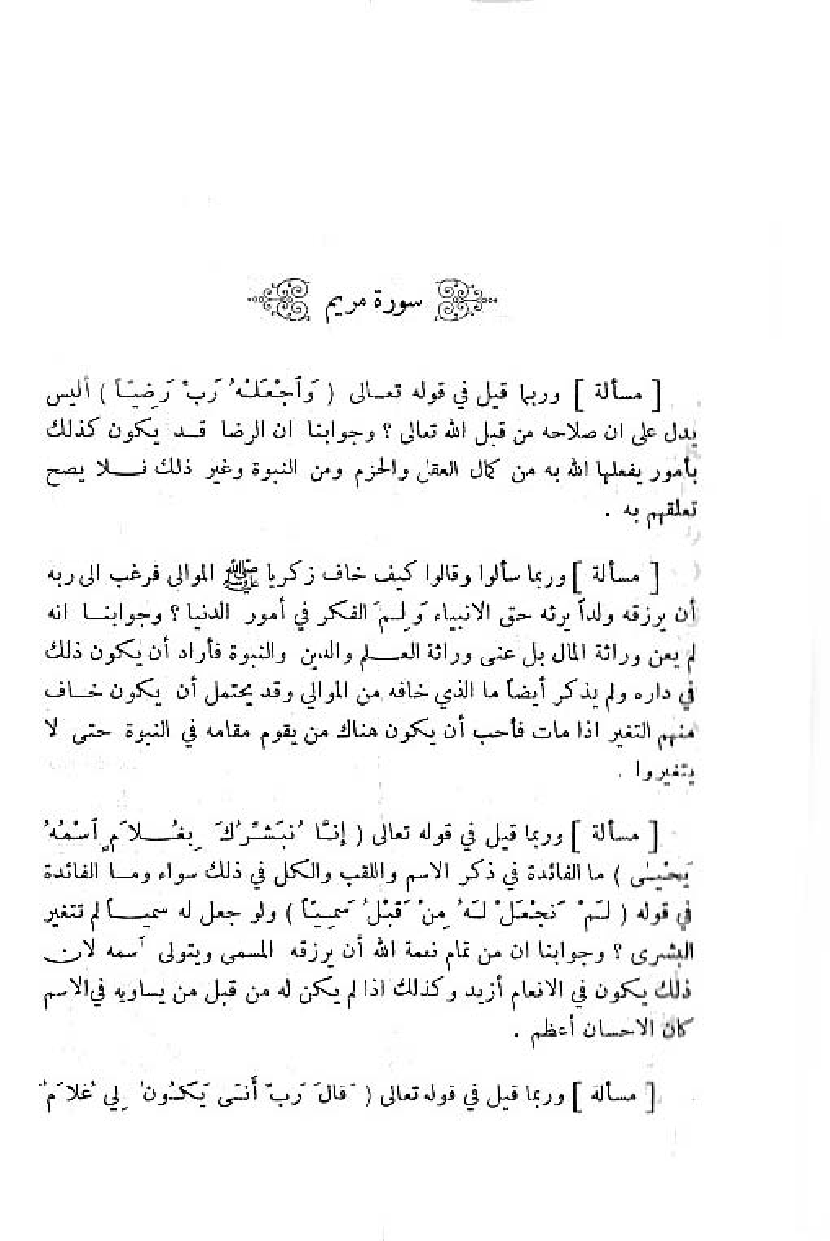 سورة مريم
[ مسألة ] وربما قيل في قوله تعالى ( وَاجْعَلْهُ رَبِّ رَضِيًّا ) أليس
يدل على ان صلاحه من قبل الله تعالى ؟ وجوابنا ان الرضا قد يكون كذلك
بأمور يفعلها الله به من كمال العقل والحزم ومن النبوة وغير ذلك فلا يصح
تعلقهم به .
[ مسألة ] وربما سألوا وقالوا كيف خاف زكريا ﷺ الموالى فرغب الى ربه
أن يرزقه ولداً يرثه حق الانبياء وَلِمَ الفكر في أمور الدنيا ؟ وجوابنا انه
لم يعن وراثة المال بل عنى وراثة العلم والدين والنبوة فأراد أن يكون ذلك
في داره ولم يذكر أيضاً ما الذي خافه من الموالي وقد يحتمل أن يكون خاف
منهم التغير اذا مات فأحب أن يكون هناك من يقوم مقامه في النبوة حتى لا
يتغيروا .
[ مسألة ] وربما قيل في قوله تعالى ( إِنَّا نُبَشِّرُكَ بِغُلاَمٍ اسْمُهُ
يَحْيَىٰ ) ما الفائدة في ذكر الاسم واللقب والكل في ذلك سواء وما الفائدة
في قوله ( لَمْ نَجْعَلْ لَهُ مِنْ قَبْلُ سَمِيًّا ) ولو جعل له سمياً لم تتغير
البشرى ؟ وجوابنا ان من تمام نعمة الله أن يرزقه المسمى ويتولى اسمه لان
ذلك يكون في الانعام أزيد وكذلك اذا لم يكن له من قبل من يساويه في الاسم
كان الاحسان أعظم .
[ مسألة ] وربما قيل في قوله تعالى ( قَالَ رَبِّ أَنَّى يَكُونُ لِي غُلاَمٌ